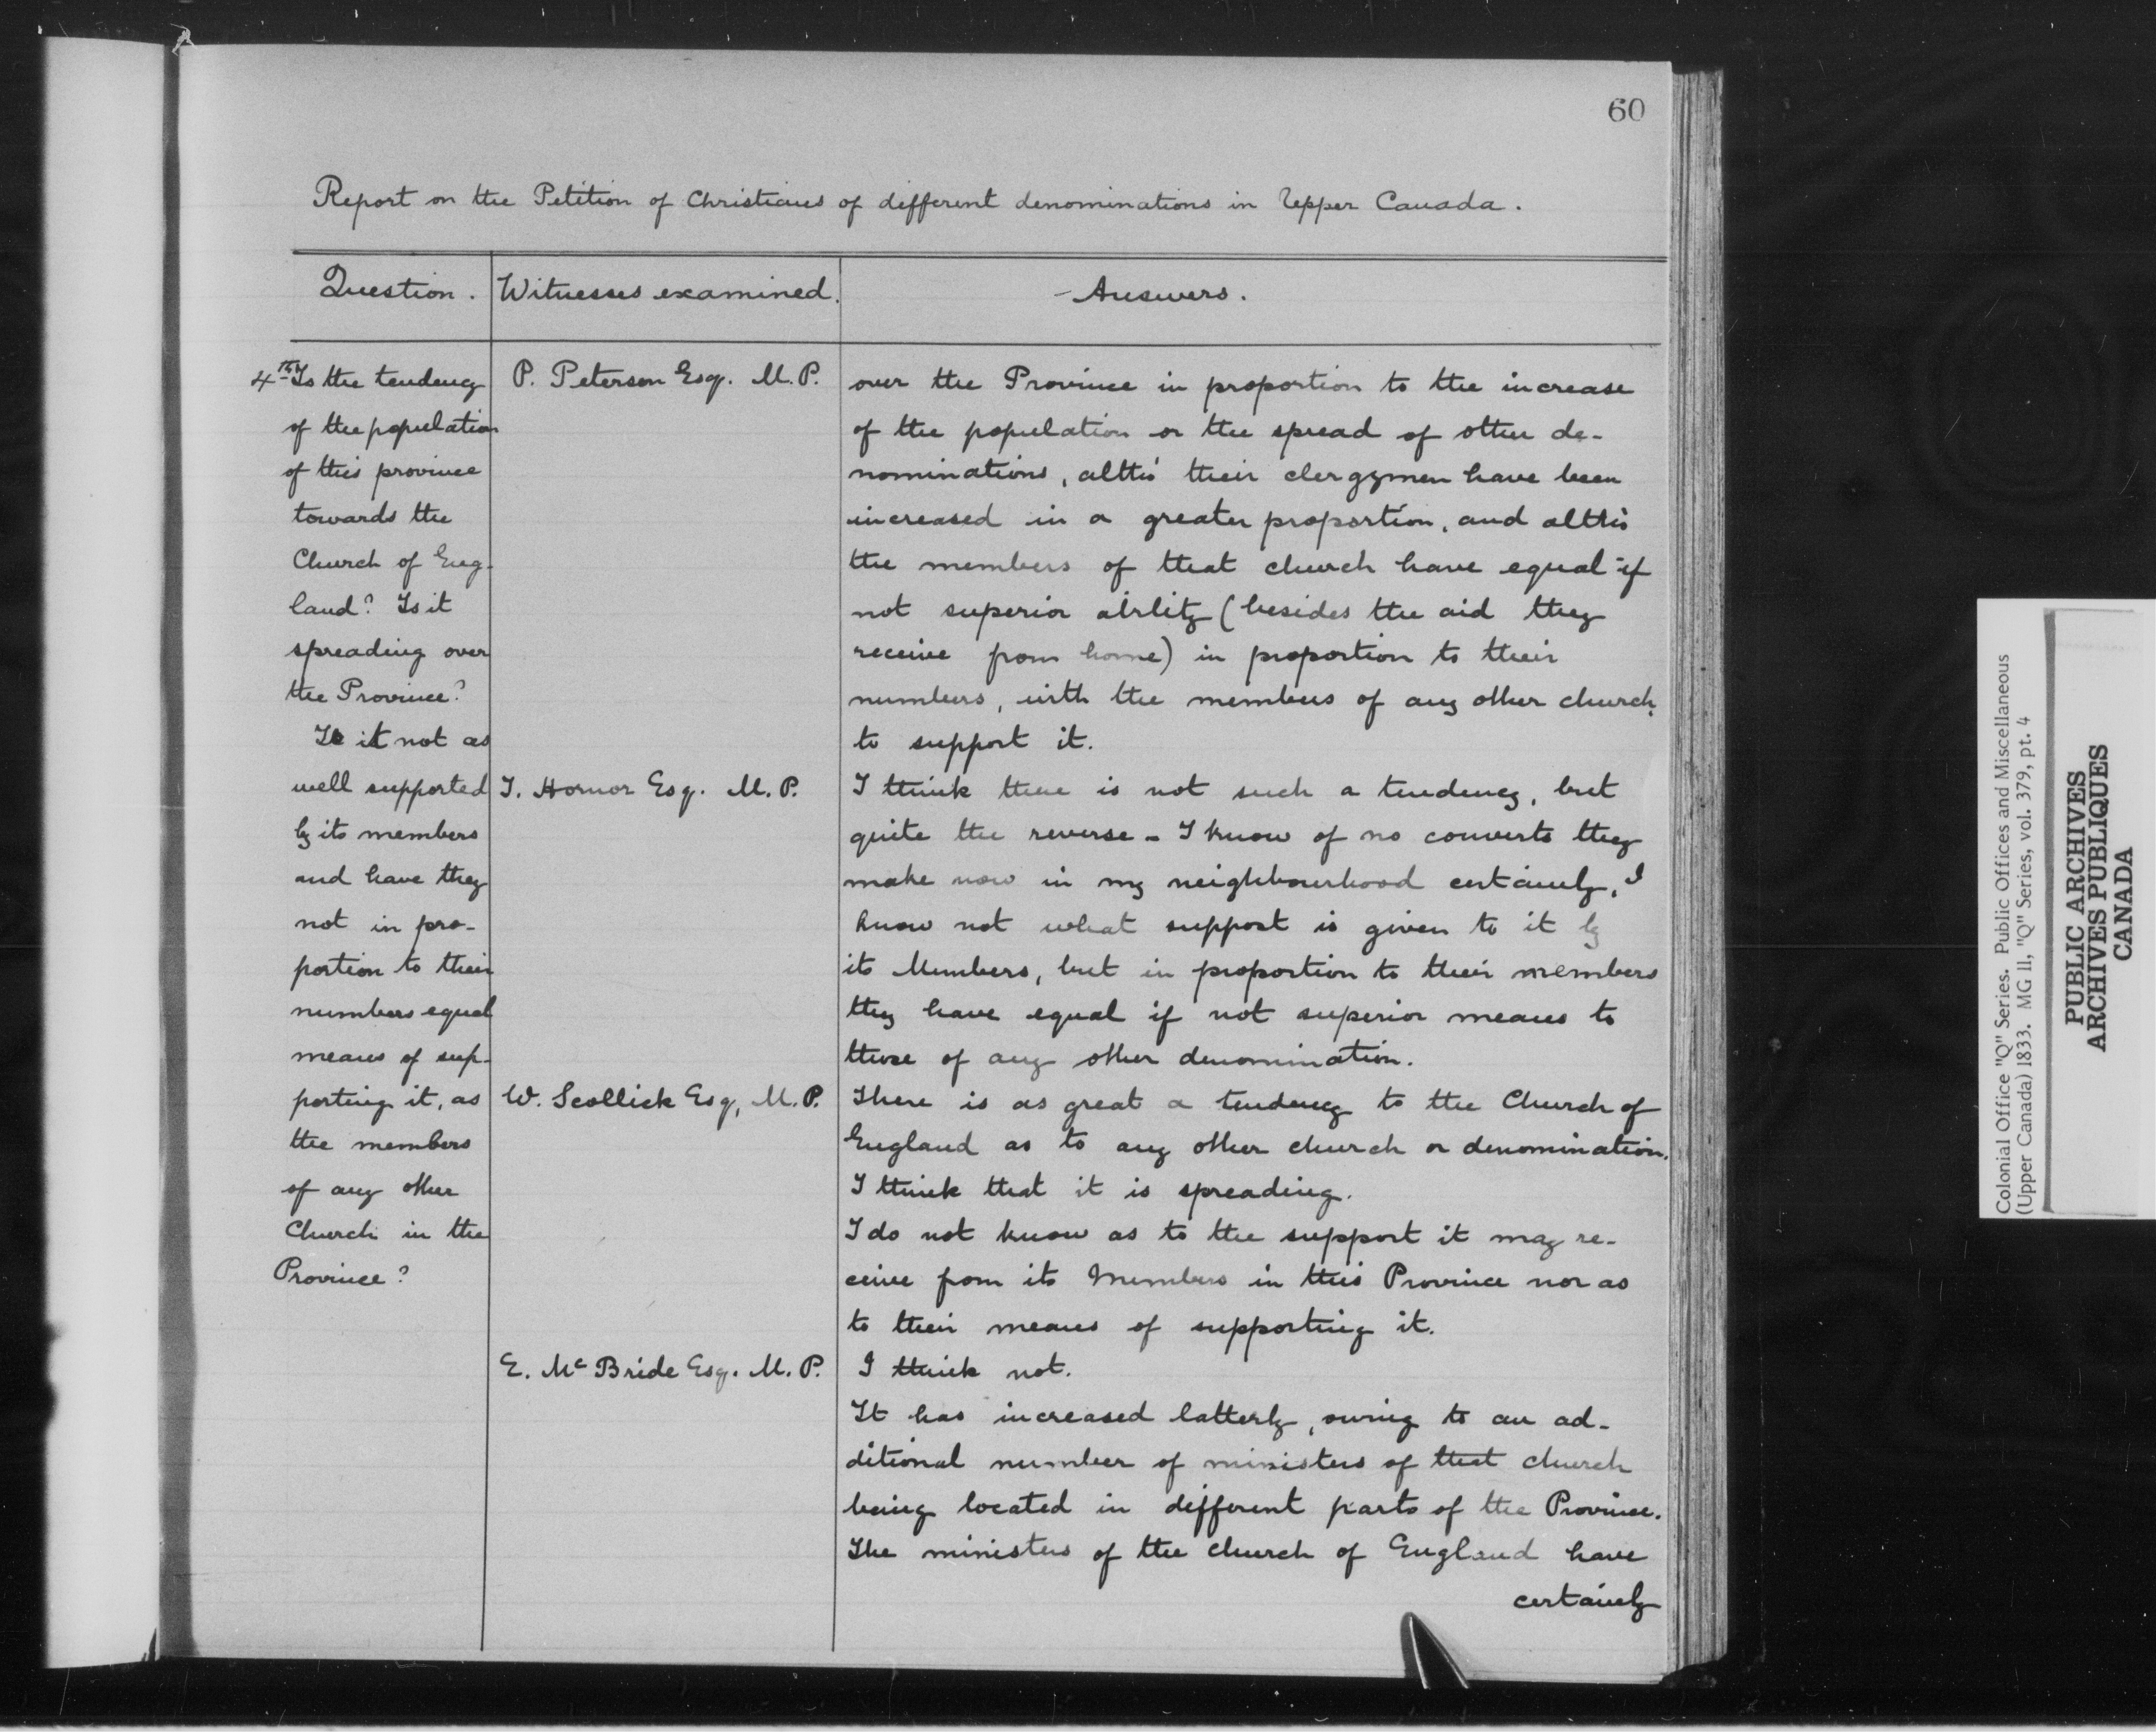 60
Report on the Petition of Christians of different denominations in Upper Canada.
Question.
Witnesses examined.
Answers.
4th Is the tendency
of the population
of this province
towards the
Church of Eng-
land? Is it
spreading over
the Province?
Is it not as
well supported
by its members
and have they
not in pro-
portion to their
numbers equal
means of sup-
porting it, as
the members
of any other
Church in the
Province?
P. Peterson Esq. M.P.
over the Province in proportion to the increase
of the population or the spread of other de-
nominations, altho' their clergymen have been
increased in a greater proportion, and altho'
the members of that church have equal if
not superior ability (besides the aid they
receive from home) in proportion to their
numbers, with the members of any other church,
to support it.
T. Hornor Esq. M.P.
I think there is not such a tendency, but
quite the reverse - I know of no converts they
make now in my neighbourhood certainly, I
know not what support is given to it by
its Members, but in proportion to their members
they have equal if not superior means to
those of any other denomination.
W. Scollick Esq, M.P.
There is as great a tendency to the Church of
England as to any other church or denomination.
I think that it is spreading.
I do not know as to the support it may re-
ceive from its Members in this Province nor as
to their means of supporting it.
E. McBride Esq. M.P.
I think not.
It has increased latterly, owing to an ad-
ditional number of ministers of that church
being located in different parts of the Province.
The ministers of the church of England have
certainly
Colonial Office "Q" Series. Public Offices and Miscellaneous
(Upper Canada) 1833. MG 11, "Q" Series, vol. 379, pt. 4
PUBLIC ARCHIVES
ARCHIVES PUBLIQUES
CANADA